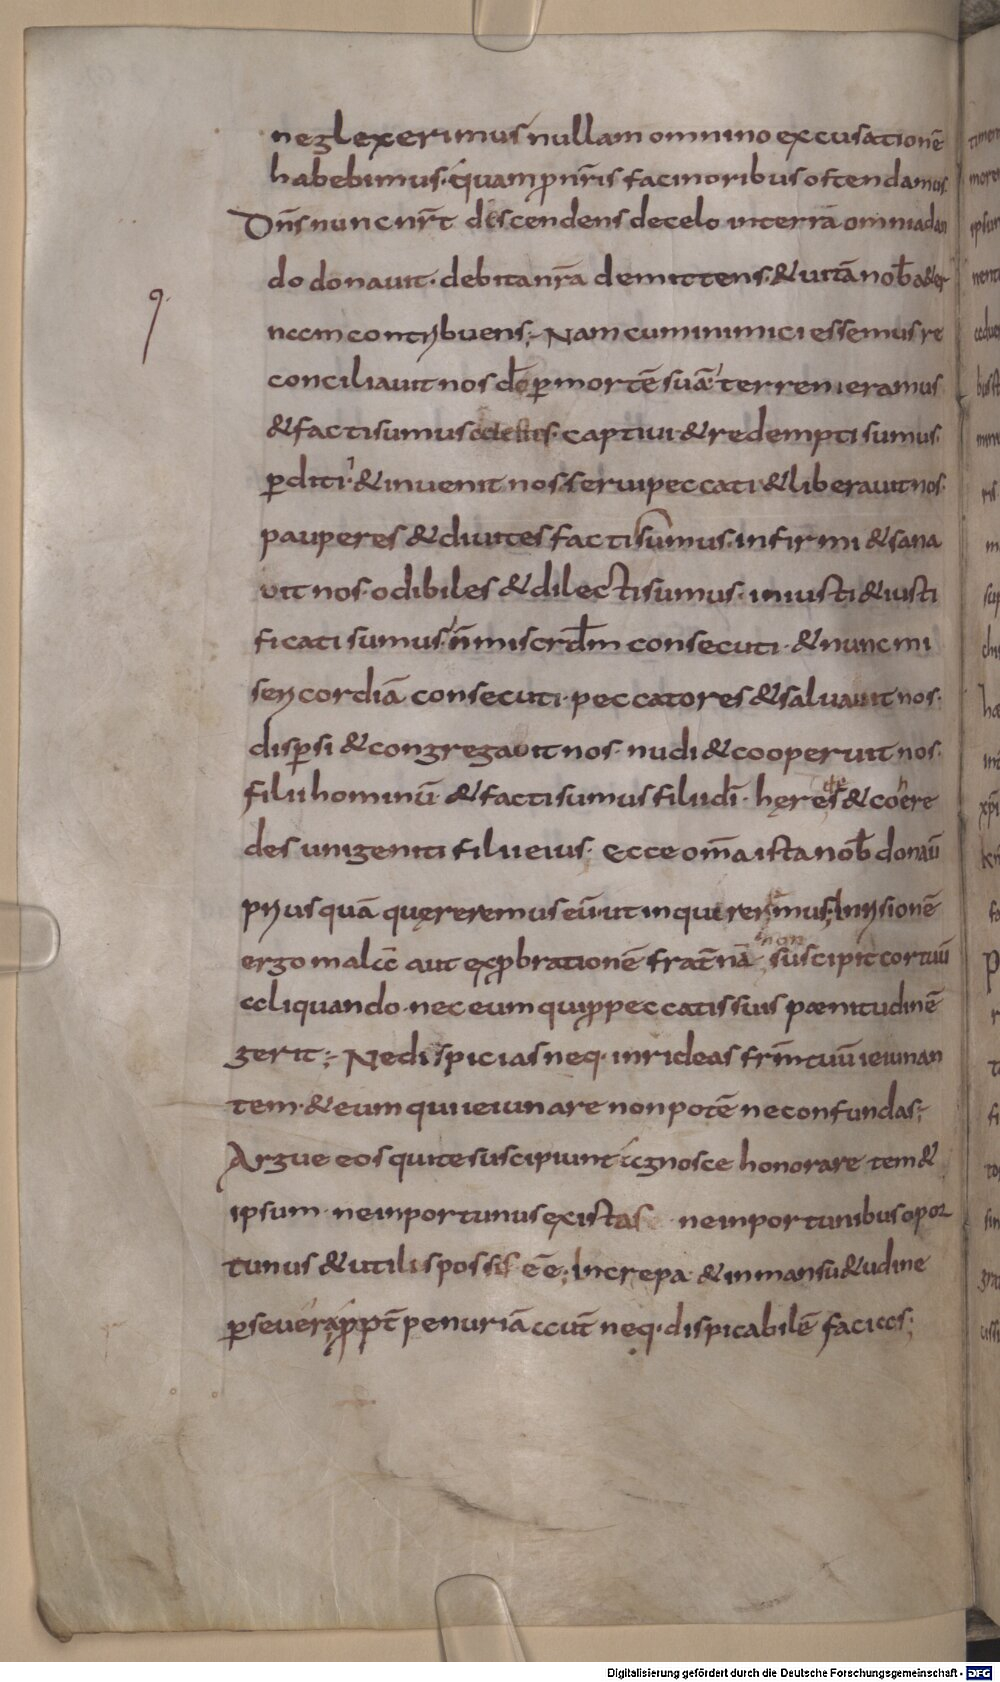 neglexerimus nullam omnino excusationē
habebimus. quam ꝓ nr̄is facinoribus ostendamus.
Dn̄s nunc nr̄t descendens de celo in terrā omnia dan
do donauit. debita nr̄a demittens. & uitā nob̄ a&er
nam contribuens; Nam cum inimici essemus re
conciliauit nos dō ꝑ mortē suā. terreni eramus
& facti sumus captiui & redempti sumus.
ꝑditi & inuenit nos. serui peccati & liberauit nos.
pauperes & diuites facti sumus. infirmi & sana
uit nos. odibiles & dilecti sumus. iniusti & iusti
ficati sumus. n̄ miscrd̄m consecuti. & nunc mi
sericordiā consecuti. peccatores & saluauit nos.
disꝑsi & congregauit nos. nudi & cooperuit nos.
filii hominū & facti sumus filii dī. hęredes & cohere
des unigeniti filii eius. Ecce om̄a ista nob̄ donaū
prius quā quęreremus eū. ut inquireremus; Inrisionē
non
ergo malā aut exꝓbrationē frat̄nā suscipit cor tuū
aliquando. nec eum qui ꝓ peccatis suis pænitudinē
gerit; Ne dispicias neq. inrideas frm̄ tuū ieiunan
tem. & eum qui ieiunare non potē ne confundas;
Argue eos qui te suscipiunt agnosce honorare tem&
ipsum. ne inportunus existas ne inportunibus opor
tunus & utilis possis eē; Increpa & in mansu&udine
ꝑseuera ꝓpt̄ penuriā aut neq. dispicabilē facias;
Digitalisierung gefördert durch die Deutsche Forschungsgemeinschaft - DFG